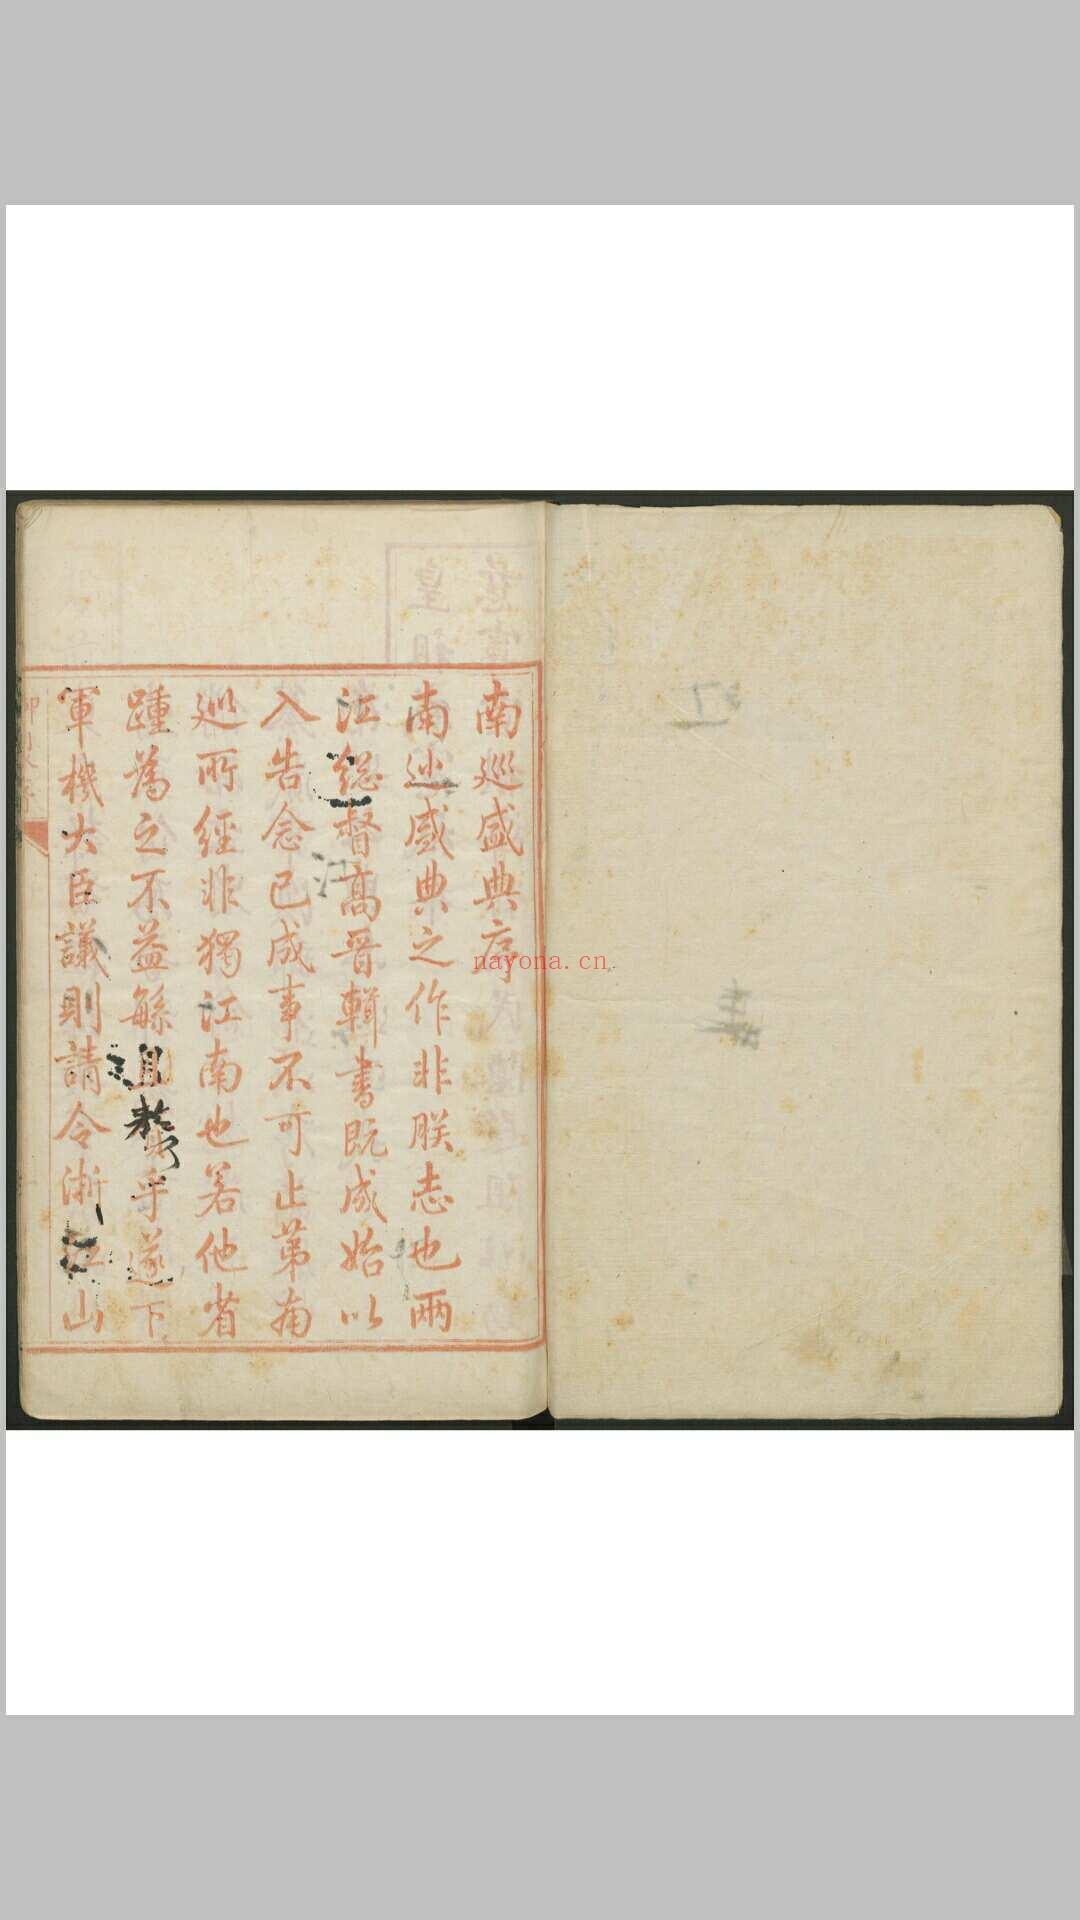 南巡盛典序
南巡盛典之作非朕志也兩
江總督髙晋輯書既成始以
入告念已成事不可止第南
巡所經非獨江南也若他省
踵為之不益繇且
乎遂下
軍機大臣議則請令浙江山
nayona.cn